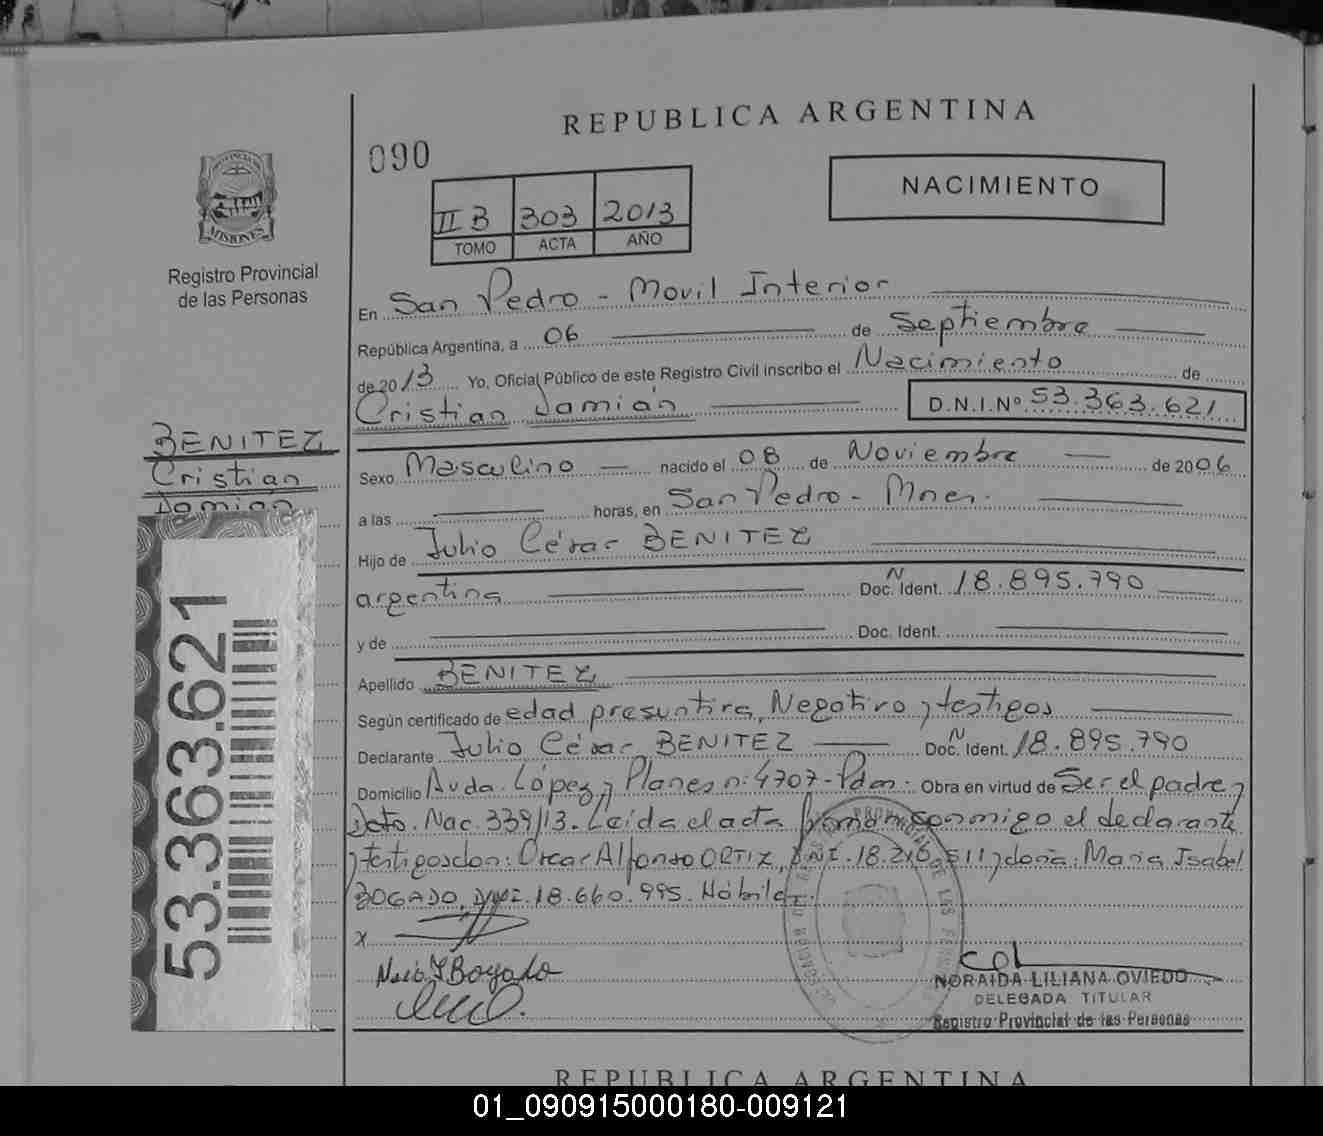 REPUBLICA ARGENTINA
090
NACIMIENTO
II B 303 2013
TOMO ACTA AÑO
MISIONES
Registro Provincial
de las Personas
En San Pedro - Movil Interior
República Argentina, a 06 de Septiembre
de 2013 Yo, Oficial Público de este Registro Civil inscribo el Nacimiento de
Cristian Damián D.N.I.Nº 53.363.621
BENITEZ
Cristian
Damián
Sexo Masculino nacido el 08 de Noviembre de 2006
a las horas, en San Pedro - Mnes.
Hijo de Julio César BENITEZ
argentina Doc. N Ident. 18.895.790
y de Doc. Ident.
Apellido BENITEZ
Según certificado de edad presuntiva, Negativo y testigos
Declarante Julio César BENITEZ Doc. N Ident. 18.895.790
Domicilio Avda. López y Planes n: 4707-Pdas. Obra en virtud de Ser el padre y
Dcto. Nac. 339/13. Leída el acta conmigo el declarante
y testigos don: Oscar Alfonso ORTIZ, DNI. 18.216.511 y doña: Maria Isabel
BOGADO, DNI. 18.660.995. Hábiles.
x
Maria I Bogado
NORAIDA LILIANA OVIEDO
DELEGADA TITULAR
Registro Provincial de las Personas
53.363.621
REPUBLICA ARGENTINA
01_090915000180-009121